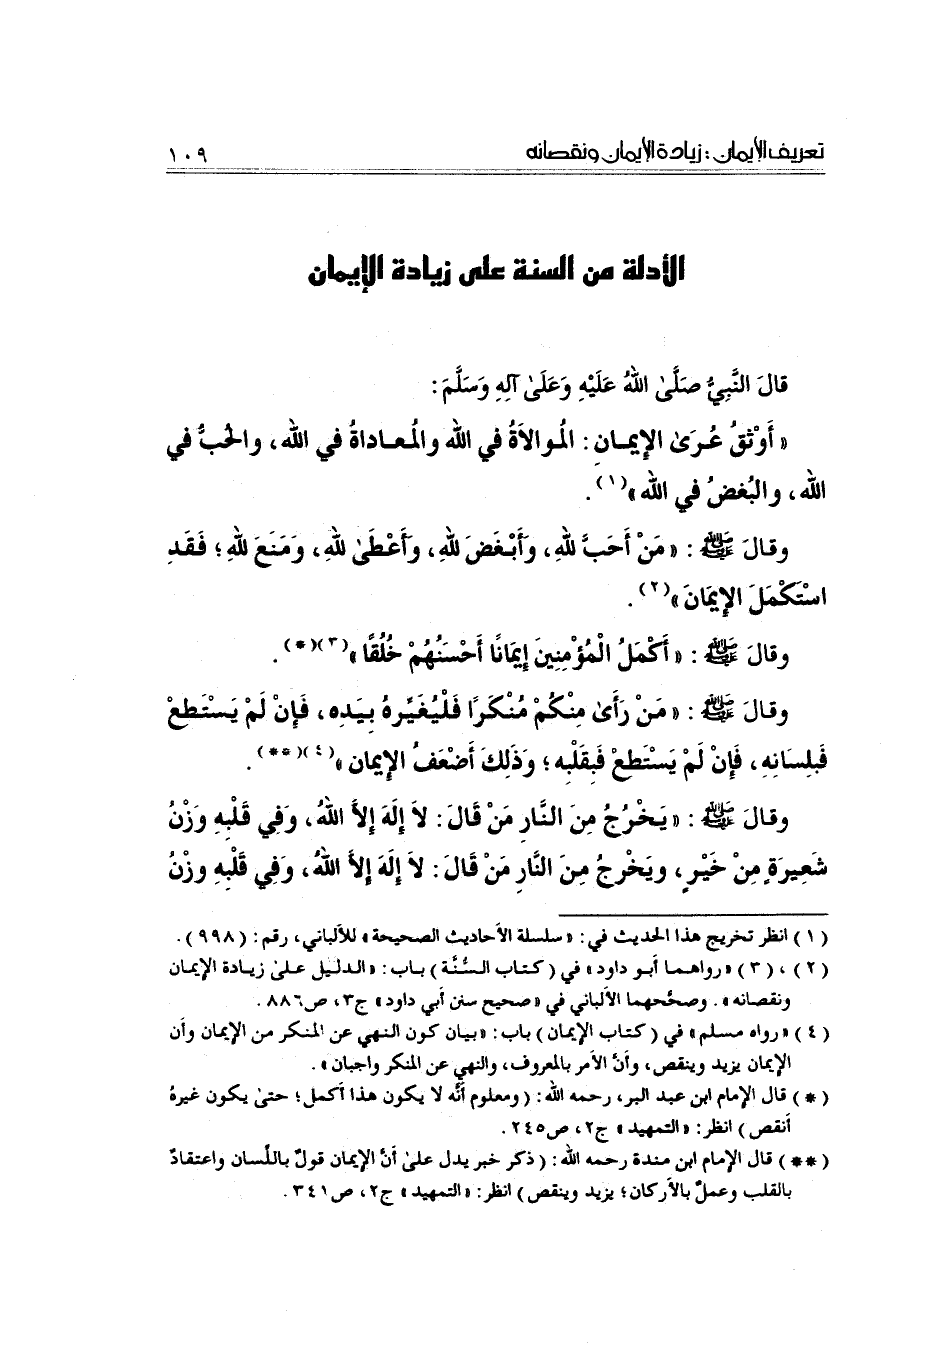 تعريف الإيمان : زيادة الإيمان ونقصانه ١٠٩
الأدلة من السنة على زيادة الإيمان
قالَ النَّبِيُّ صَلَّىٰ اللهُ عَلَيْهِ وَعَلَىٰ آلِهِ وَسَلَّمَ :
« أَوْثَقُ عُرَىٰ الإيمـان : المُوالاَةُ في الله والمُعـاداةُ في الله ، والحُبُّ في
الله ، والبُغضُ في الله »(١) .
وقالَ ﷺ : « مَنْ أَحَبَّ للهِ ، وَأَبْـغَضَ للهِ ، وَأَعْطَىٰ للهِ ، وَمَنَعَ للهِ ؛ فَقَـدِ
اسْتَكْمَلَ الإِيمَانَ »(٢) .
وقالَ ﷺ : « أَكْمَلُ الْمُؤْمِنِينَ إِيمَانًا أَحْسَنُهُمْ خُلُقًا »(٣)(*) .
وقالَ ﷺ : « مَـنْ رَأَىٰ مِنْكُمْ مُنْكَـرًا فَلْيُغَيِّـرهُ بِيَـدِهِ ، فَإِنْ لَمْ يَسْتَطِعْ
فَبِلِسَانِهِ ، فَإِنْ لَمْ يَسْتَطِعْ فَبِقَلْبِهِ ؛ وَذَلِكَ أَضْعَفُ الإِيمان »(٤)(**) .
وقالَ ﷺ : « يَـخْرُجُ مِنَ النَّـارِ مَنْ قَالَ : لاَ إِلَهَ إِلاَّ اللهُ ، وَفِي قَلْبِهِ وَزْنُ
شَعِيرَةٍ مِنْ خَيْرٍ ، ويَخْرجُ مِنَ النَّارِ مَنْ قَالَ : لاَ إِلَهَ إِلاَّ اللهُ ، وَفِي قَلْبِهِ وزْنُ
( ١ ) انظر تخريج هذا الحديث في : « سلسلة الأحاديث الصحيحة » للألباني ، رقم : ( ٩٩٨ ) .
( ٢ ) ، ( ٣ ) « رواهمـا أبـو داود » في ( كتـاب السُّنَّة ) بـاب : « الدليل علىٰ زيـادة الإيمان
ونقصانه » . وصحَّحهما الألباني في « صحيح سنن أبي داود » ج٣ ، ص٨٨٦ .
( ٤ ) « رواه مسلم » في ( كتاب الإيمان ) باب : « بيان كون النهي عن المنكر من الإيمان وأن
الإيمان يزيد وينقص ، وأنَّ الأمر بالمعروف ، والنهي عن المنكر واجبان » .
( * ) قال الإمام ابن عبد البر ، رحمه الله : ( ومعلوم أنَّه لا يكون هذا أكمل ؛ حتىٰ يكون غيرهُ
أنقص ) انظر : « التمهيد » ج٢ ، ص٢٤٥ .
( ** ) قال الإمام ابن مندة رحمه الله : ( ذكر خبر يدل علىٰ أنَّ الإيمان قولٌ باللِّسان واعتقادٌ
بالقلب وعملٌ بالأركان ؛ يزيد وينقص ) انظر : « التمهيد » ج٢ ، ص٣٤١ .